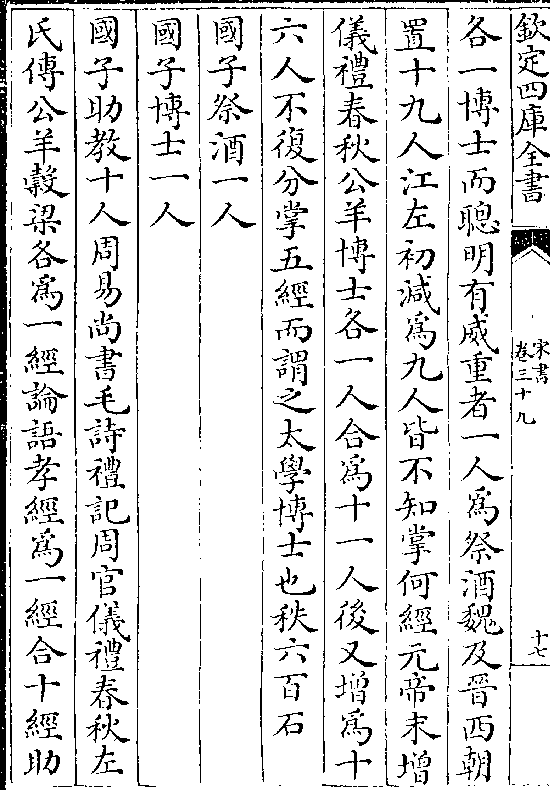 欽定四庫全書
宋書
卷三十九
十七
各一博士而聰明有威重者一人爲祭酒魏及晉西朝
置十九人江左初減爲九人皆不知掌何經元帝末增
儀禮春秋公羊博士各一人合爲十一人後又增爲十
六人不復分掌五經而謂之太學博士也秩六百石
國子祭酒一人
國子博士一人
國子助教十人周易尚書毛詩禮記周官儀禮春秋左
氏傳公羊榖梁各爲一經論語孝經爲一經合十經助